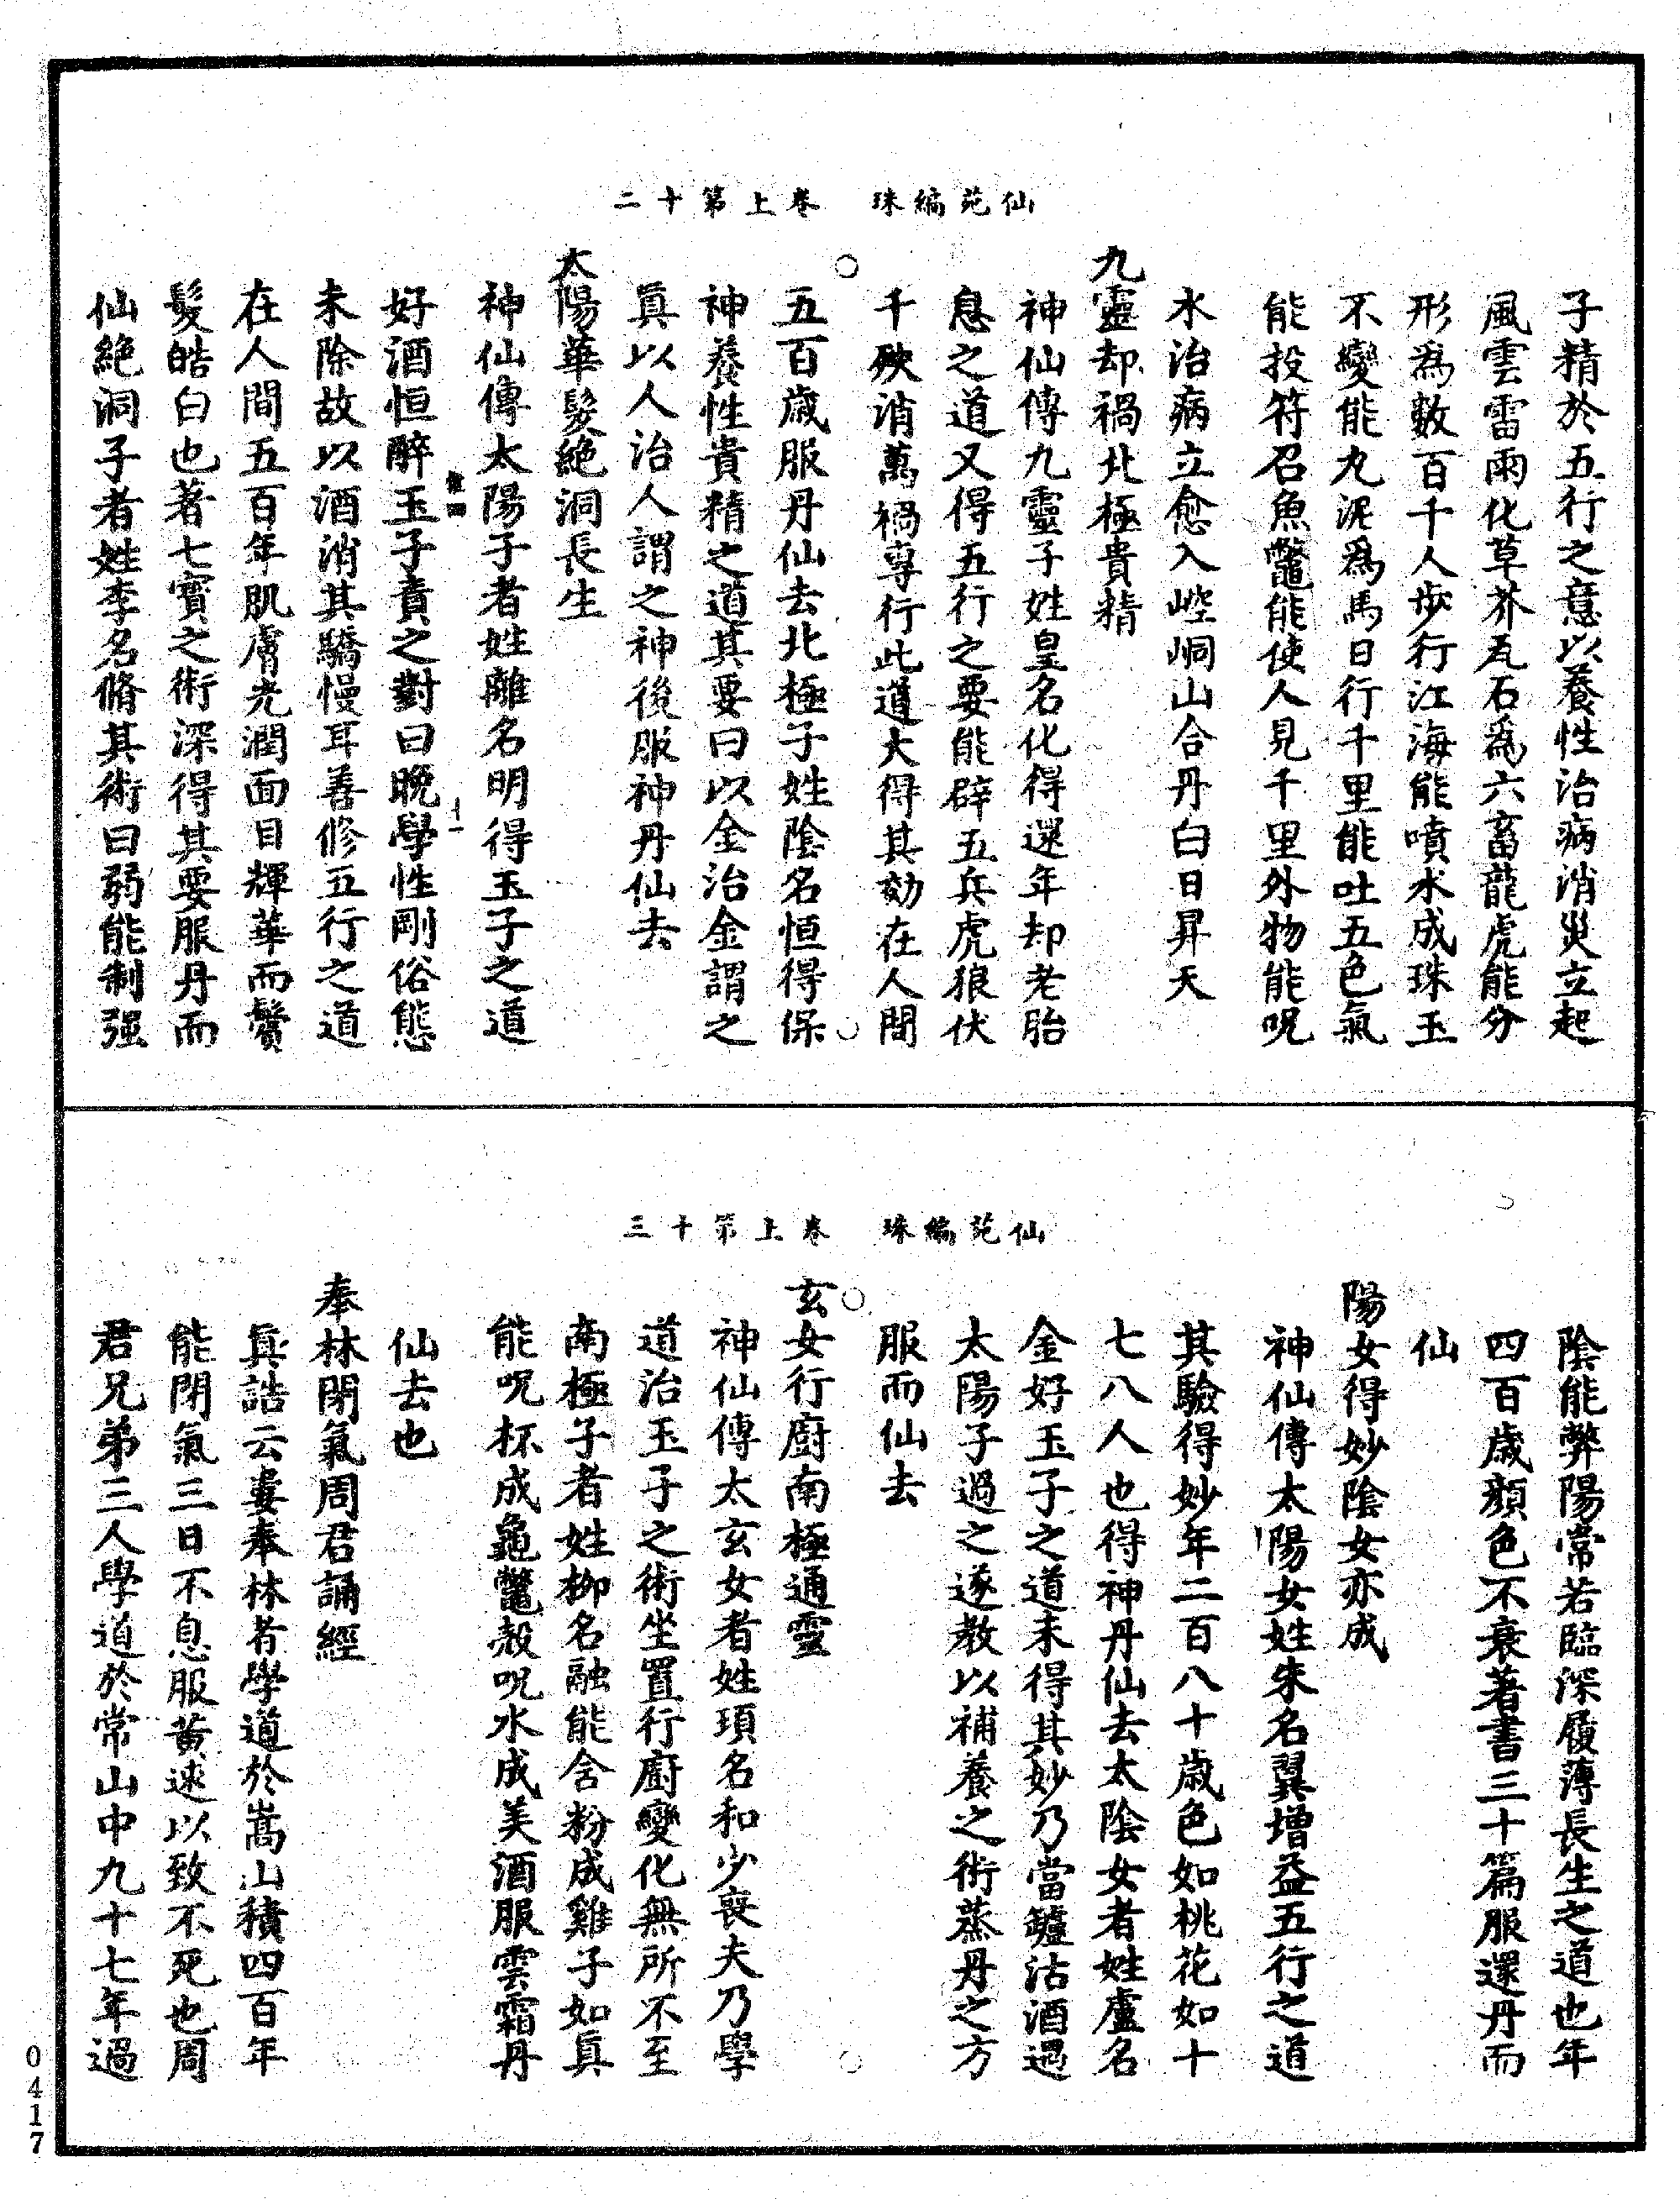 仙苑編珠　卷上第十二
子精於五行之意以養性治病消災立起
風雲雷雨化草芥瓦石爲六畜龍虎能分
形爲數百千人步行江海能噴水成珠玉
不變能丸泥爲馬日行千里能吐五色氣
能投符召魚鼈能使人見千里外物能呪
水治病立愈入崆峒山合丹白日昇天
九靈却禍北極貴精
神仙傳九靈子姓皇名化得還年却老胎
息之道又得五行之要能辟五兵虎狼伏
千殃消萬禍專行此道大得其効在人間
五百歲服丹仙去北極子姓陰名恒得保
神養性貴精之道其要曰以金治金謂之
眞以人治人謂之神後服神丹仙去
太陽華髮絕洞長生
神仙傳太陽子者姓離名明得玉子之道
好酒恒醉玉子責之對曰晚學性剛俗態
未除故以酒消其驕慢耳善修五行之道
在人間五百年肌膚光潤面目輝華而鬢
髮皓白也著七寶之術深得其要服丹而
仙絕洞子者姓李名脩其術曰弱能制强
仙苑編珠　卷上第十三
陰能弊陽常若臨深履薄長生之道也年
四百歲顏色不衰著書三十篇服還丹而
仙
陽女得妙陰女亦成
神仙傳太陽女姓朱名翼增益五行之道
其驗得妙年二百八十歲色如桃花如十
七八人也得神丹仙去太陰女者姓盧名
金好玉子之道未得其妙乃當鑪沽酒遇
太陽子過之遂教以補養之術蒸丹之方
服而仙去
玄女行廚南極通靈
神仙傳太玄女者姓項名和少喪夫乃學
道治玉子之術坐置行廚變化無所不至
南極子者姓柳名融能含粉成雞子如眞
能呪杯成龜鼈殼呪水成美酒服雲霜丹
仙去也
奉林閉氣周君誦經
眞誥云婁奉林者學道於嵩山積四百年
能閉氣三日不息服黃速以致不死也周
君兄弟三人學道於常山中九十七年過
0417